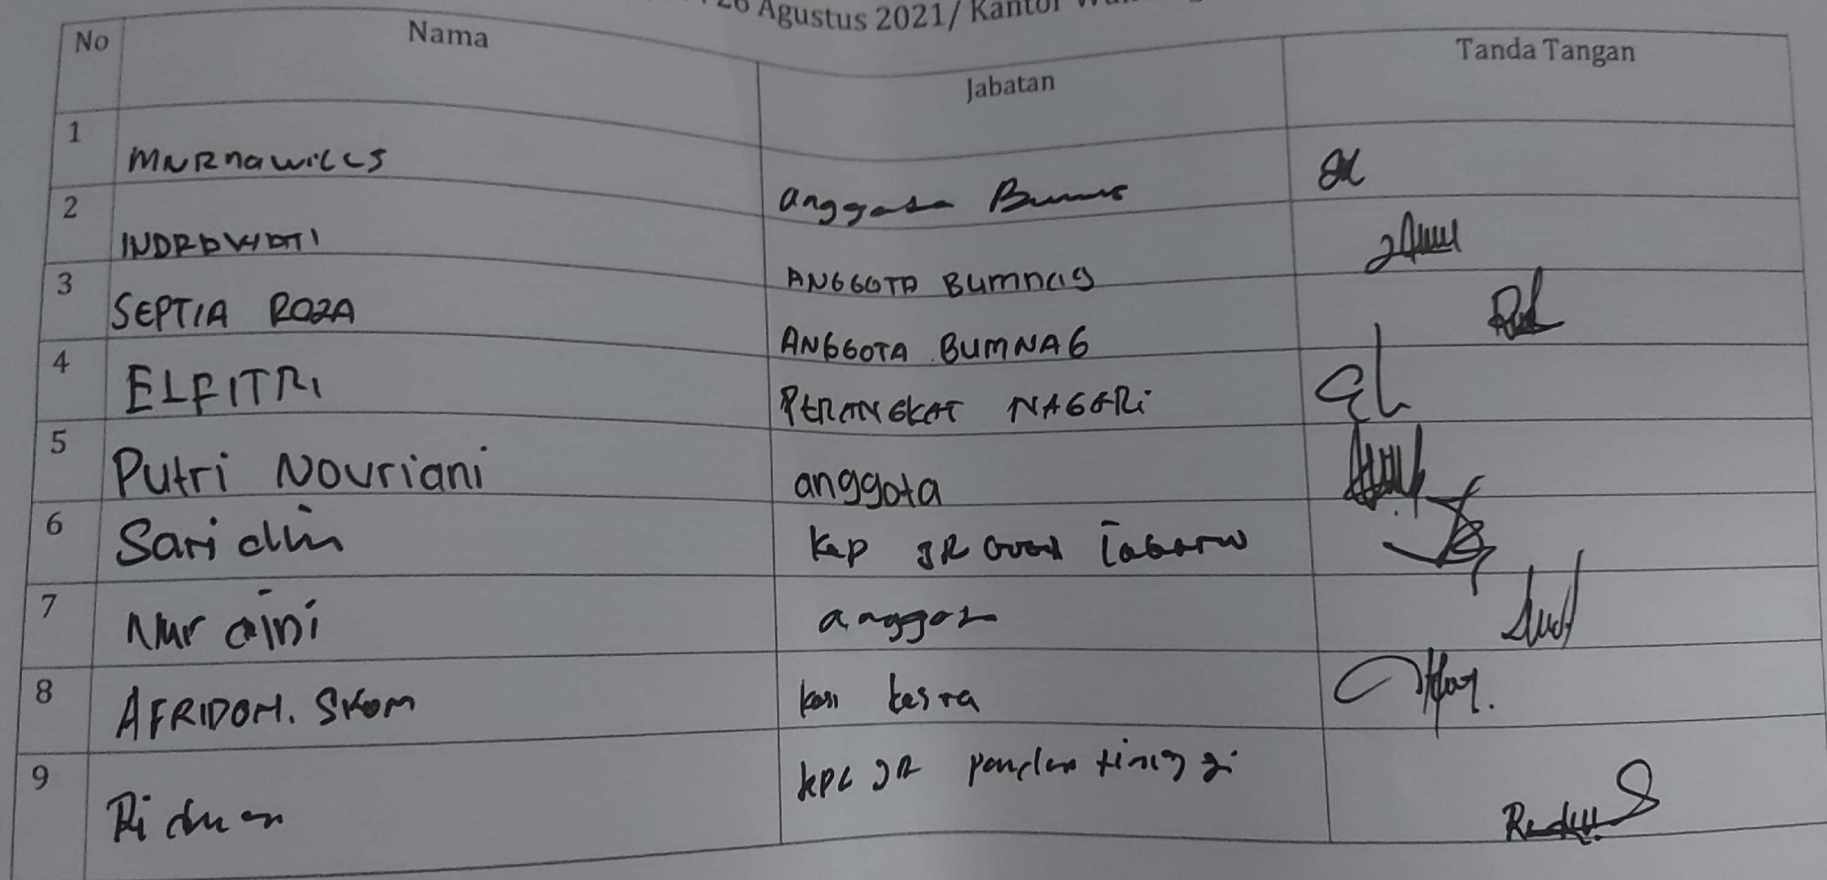 26 Agustus 2021/ Kantor
No Nama Jabatan Tanda Tangan
1 anggota
2 INDRAWATI ANGGOTA Bumnag
3 SEPTIA ROZA ANGGOTA BUMNAG
4 ELFITRI PERANGKAT NAGARI
5 Putri Nouriani anggota
6 Saridin Kep JR
7 Nur aini
8 AFRIDON. SKom kasi kesra
9 JR pandan tinggi